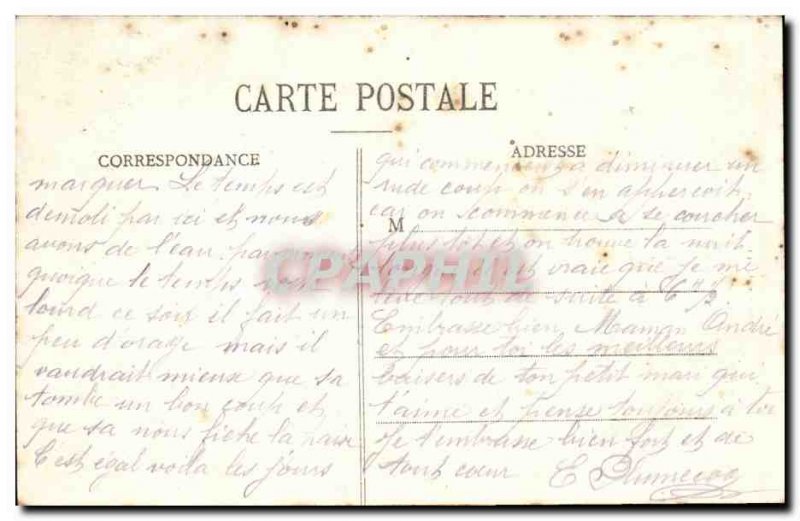 CARTE POSTALE
CORRESPONDANCE
marquer Le temps est
demoli par ici et nous
avons de l'eau
quoique le temps
lourd ce soir il fait un
peu d'orage mais il
vaudrait mieux que sa
tombe un bon coup et
que sa nous fiche la
C'est égal voila les jours
ADRESSE
qui commencent a diminuer un
rude coup on s'en appercoit
car on commence a se coucher
M
plus tot et on trouve la nuit
vraie que je me
tout de suite à
Embrasse bien Maman André
et pour toi les meilleurs
baisers de ton petit mari qui
t'aime et pense toujours à toi
Je t'embrasse bien fort et de
tout cœur E
CPAPHIL